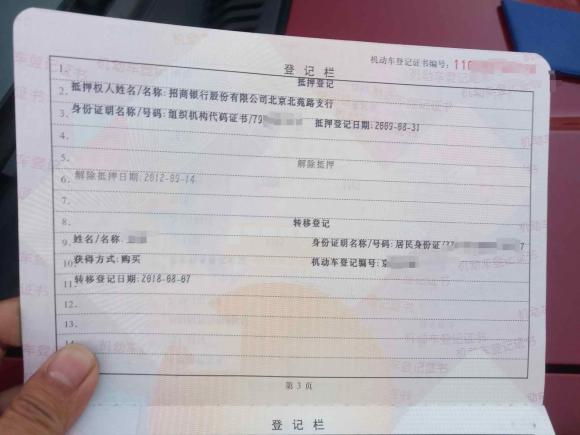 机动车登记证书编号：110
登记栏
1.
抵押登记
2.
抵押权人姓名/名称:招商银行股份有限公司北京北苑路支行
3.
身份证明名称/号码:组织机构代码证书/79 抵押登记日期:2009-08-31
4.
5.
解除抵押
6.
解除抵押日期:2012-09-14
7.
8.
转移登记
9.
姓名/名称 身份证明名称/号码:居民身份证/37 7
10
获得方式:购买 机动车登记编号:京
11.
转移登记日期:2018-08-07
12.
13.
14
第 3 页
登记栏